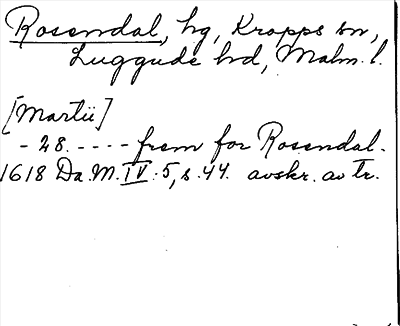 Rosendal, hg, Kropps sn,
Luggude hd, Malm. l.
[Martii]
- 28. - - - - frem for Rosendal.
1618 Da. M. IV: 5, s. 44. avskr. av tr.